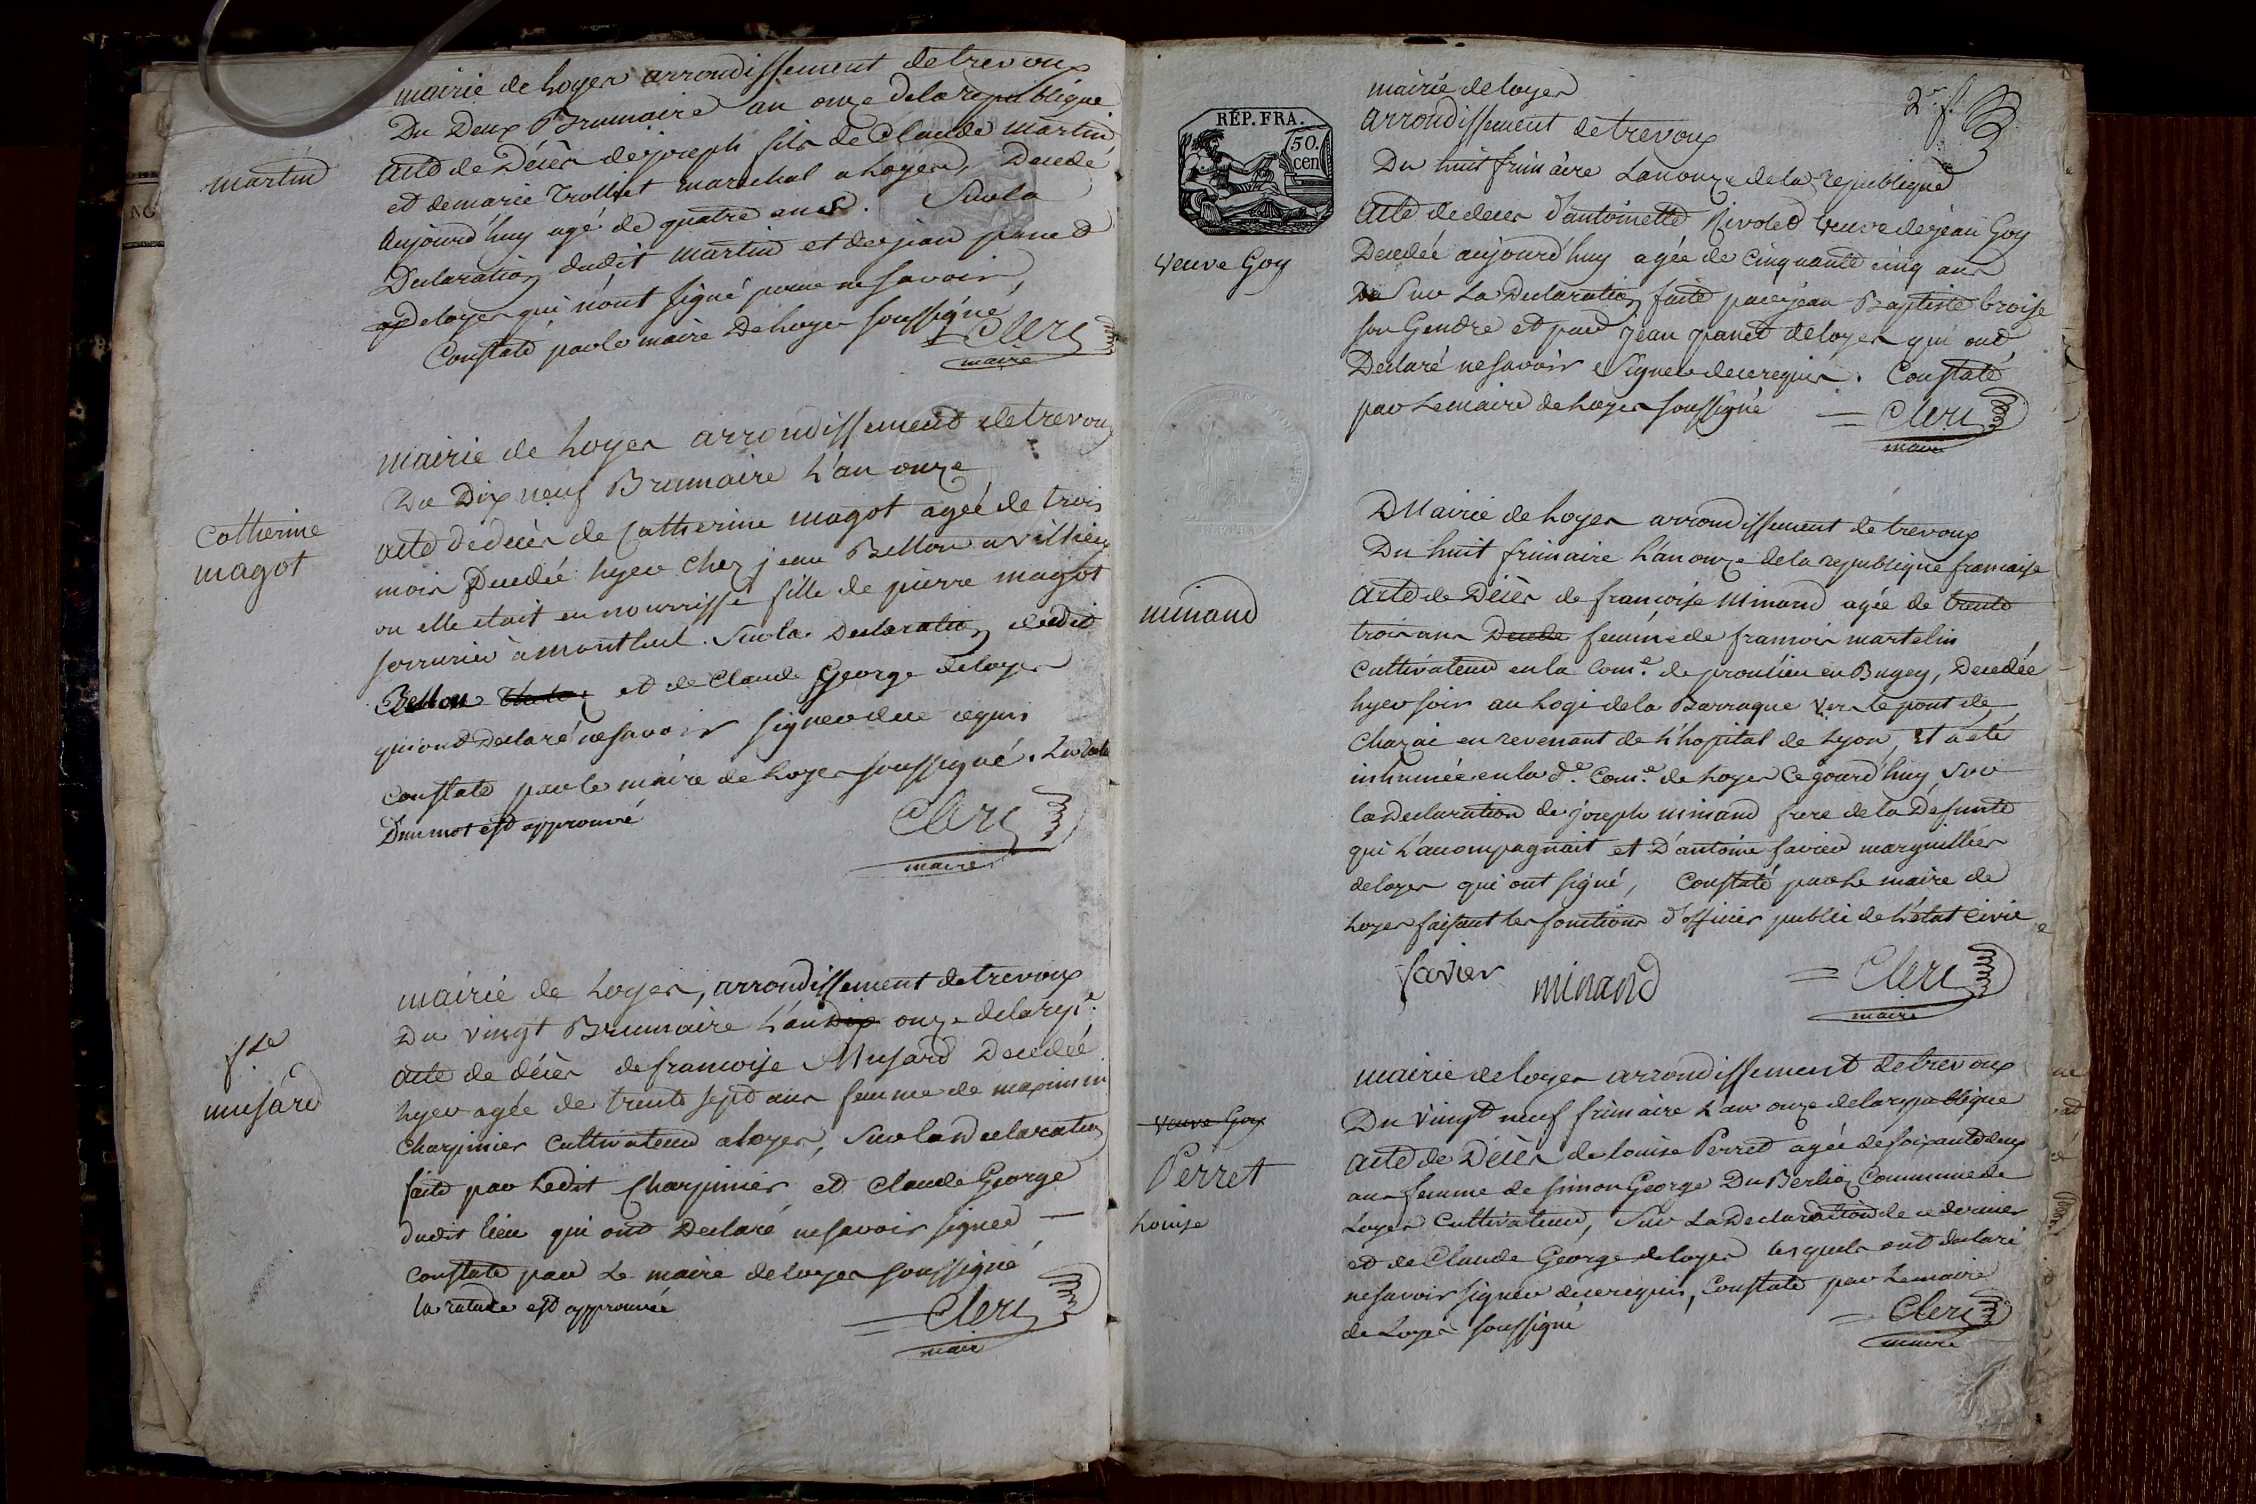 mairie de Loyes arrondissement de trevoux
Du Deux Brumaire an onze de la republique
martin
acte de Décès de joseph fils de Claude martin
et de marie trolliet marechal a Loyes, Decedé
aujourd'huy agé de quatre ans. Sur la
Declaration dudit martin et de jean panet
de loyes qui n'ont signé pour ne savoir,
Constaté par le maire de Loyes soussigné
Clerc
maire
mairie de Loyes arrondissement de trevoux
Du Dix neuf Brumaire L'an onze
Catherine
magot
acte de deces de Catherine magot agée de trois
mois Decedée hyer chez jean Bellon a villieu
ou elle etait en nourrisse fille de pierre magot
serrurier a montluel. Sur la Declaration dudit
Bellon et de Claude George de loyes
qui ont Declaré ne savoir signer de ce requis
constaté par le maire de Loyes soussigné. La
D'un mot est approuvé
Clerc
maire
mairie de Loyes, arrondissement de trevoux
Du vingt Brumaire L'an dix onze de la rep.e
f.se
musard
acte de décès de francoise Musard Decedée
hyer agée de trente sept ans femme de maximin
Charpinier Cultivateur a loyes, Sur la declaration
faite par Ledit Charpinier et Claude George
dudit lieu qui ont Declaré ne savoir signer
constaté par Le maire de loyes soussigné
la rature est approuvée
Clerc
maire
2e f.
mairie de loyes
arrondissement de trevoux
RÉP. FRA.
50.
cen
Du huit frimaire L'an onze de la republique
Veuve Goy
acte de deces d'antoinette Rivolet veuve de jean Goy
Decedée aujourd'huy agée de cinquante cinq ans
Sur La Declaration faite par jean Baptiste broise
son Gendre et par jean panet de loyes qui ont
Declaré ne savoir Signer de ce requis. Constaté
par Le maire de Loyes soussigné
Clerc
maire
Mairie de Loyes arrondissement de trevoux
Du huit frimaire L'an onze de la republique francaise
minand
acte de Décès de francoise Minand agée de trente
trois ans Decede femme de francois martelin
Cultivateur en la Com.e de proulieu en Bugey, Decedée
hyer soir au Logi de la Barraque vers le pont de
Chazai en revenant de L'hopital de Lyon, et a été
inhumée en la d.e Com.e de Loyes Ce jourd'huy, Sur
la Declaration de joseph minand frere de la Defunte
qui L'accompagnait et D'antoine favier marguillier
de loyes qui ont signé, Constaté par Le maire de
Loyes faisant les fonctions d'officier public de L'état Civil
favier minand Clerc
maire
mairie de loyes arrondissement de trevoux
Du vingt neuf frimaire L'an onze de la republique
Veuve Goy
Perret
Louise
acte de Décès de louise Perret agée de soixante deux
ans femme de simon George Du Berlion Commune de
Loyes Cultivateur, Sur La Declaration de ce dernier
et de Claude George de loyes lesquels ont declaré
ne savoir signer de ce requis, Constaté par Le maire
de Loyes soussigné
Clerc
maire